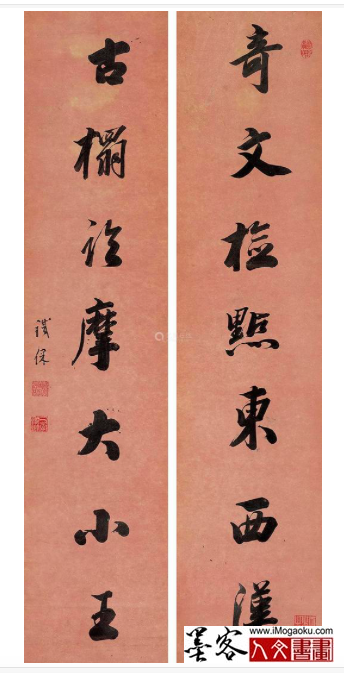 奇文檢點東西漢
古榻臨摩大小王
鐵保
墨客
www.iMogaoku.com
人文書畫